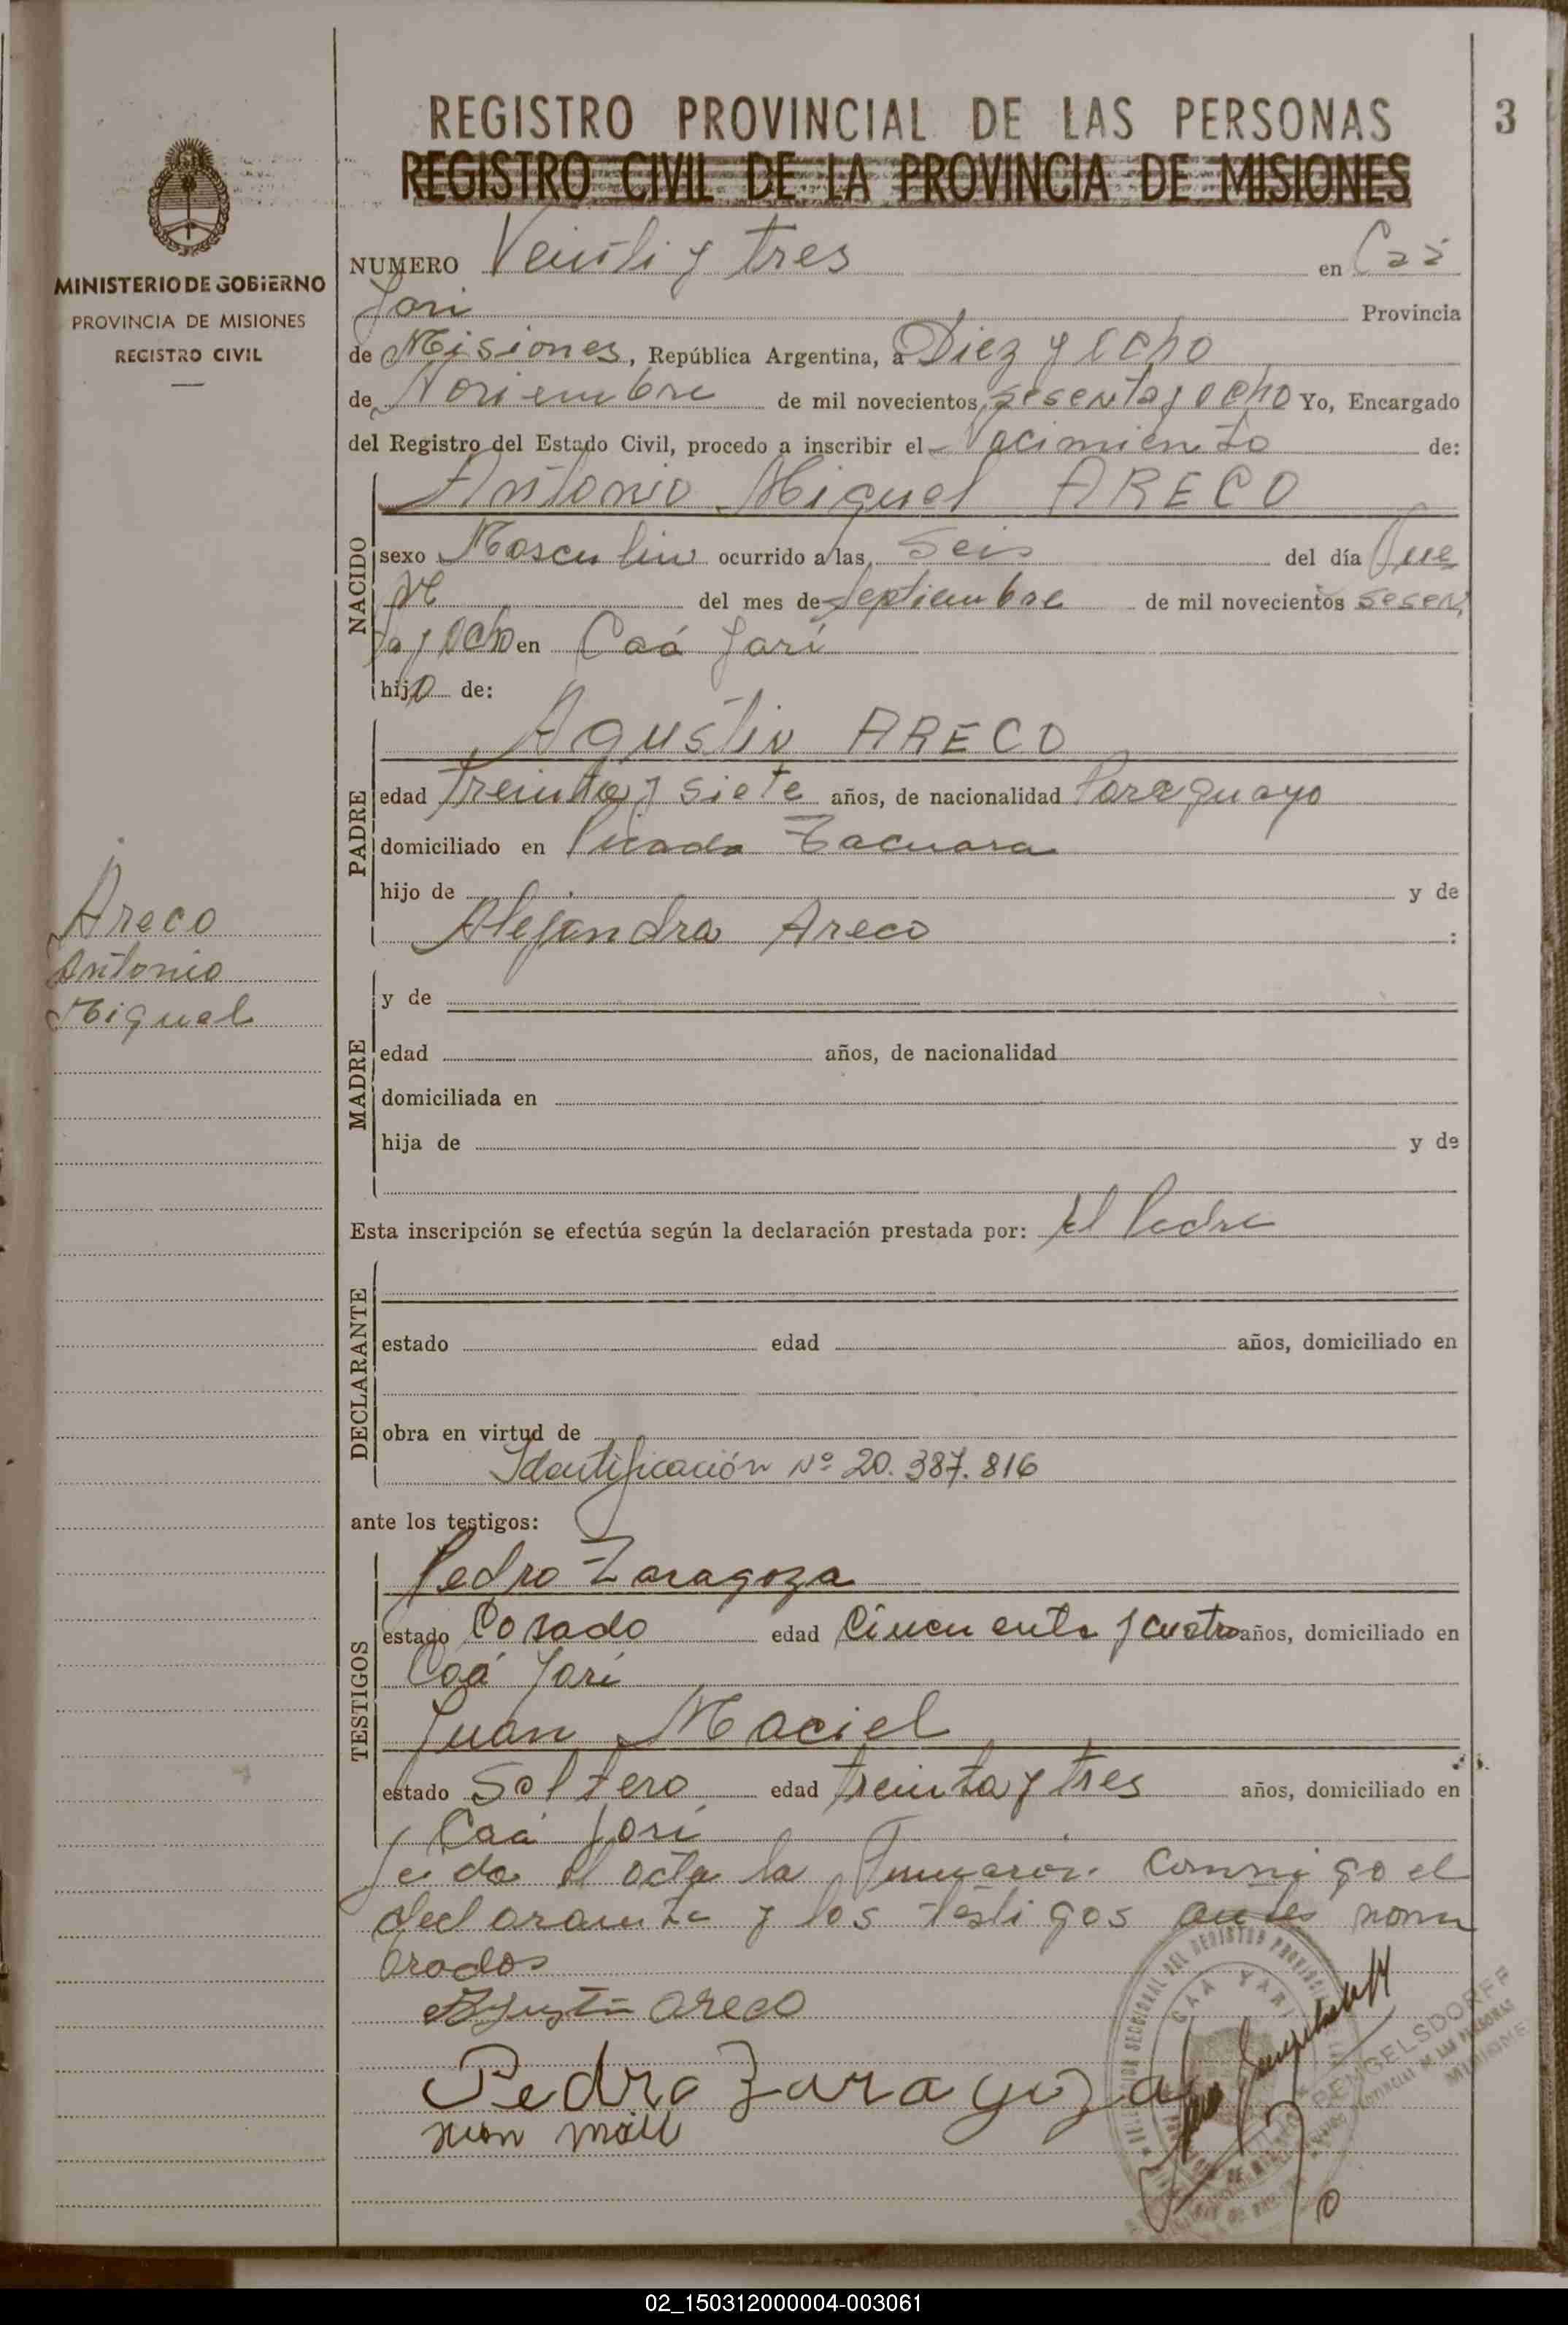 REGISTRO PROVINCIAL DE LAS PERSONAS
3
REGISTRO CIVIL DE LA PROVINCIA DE MISIONES
MINISTERIO DE GOBIERNO
PROVINCIA DE MISIONES
REGISTRO CIVIL
NUMERO Veinti y tres en Caá
Yari Provincia
de Misiones, República Argentina, a Diez y ocho
de Noviembre de mil novecientos sesenta y ocho Yo, Encargado
del Registro del Estado Civil, procedo a inscribir el Nacimiento de:
NACIDO
Antonio Miguel ARECO
sexo Masculino ocurrido a las seis del día Nue
ve del mes de Septiembre de mil novecientos sesen
ta y ocho en Caá Yari
hijo de:
PADRE
Agustin ARECO
edad Treinta y siete años, de nacionalidad Paraguayo
domiciliado en Picada Tacuara
hijo de y de
Alejandra Areco :
Areco
Antonio
Miguel
MADRE
y de
edad años, de nacionalidad
domiciliada en
hija de y de
Esta inscripción se efectúa según la declaración prestada por: El Padre
DECLARANTE
estado edad años, domiciliado en
obra en virtud de
Identificación Nº 20.387.816
ante los testigos:
TESTIGOS
Pedro Zaragoza
estado Casado edad Cincuenta y cuatro años, domiciliado en
Caá Yarí
Juan Maciel
estado Soltero edad treinta y tres años, domiciliado en
Caá Yarí
Leida el acta la firmaron conmigo el
declarante y los testigos antes nom
brados
Agustin Areco
Pedro Zaragoza
CAA YARI
BENGELSDORFF
02_150312000004-003061